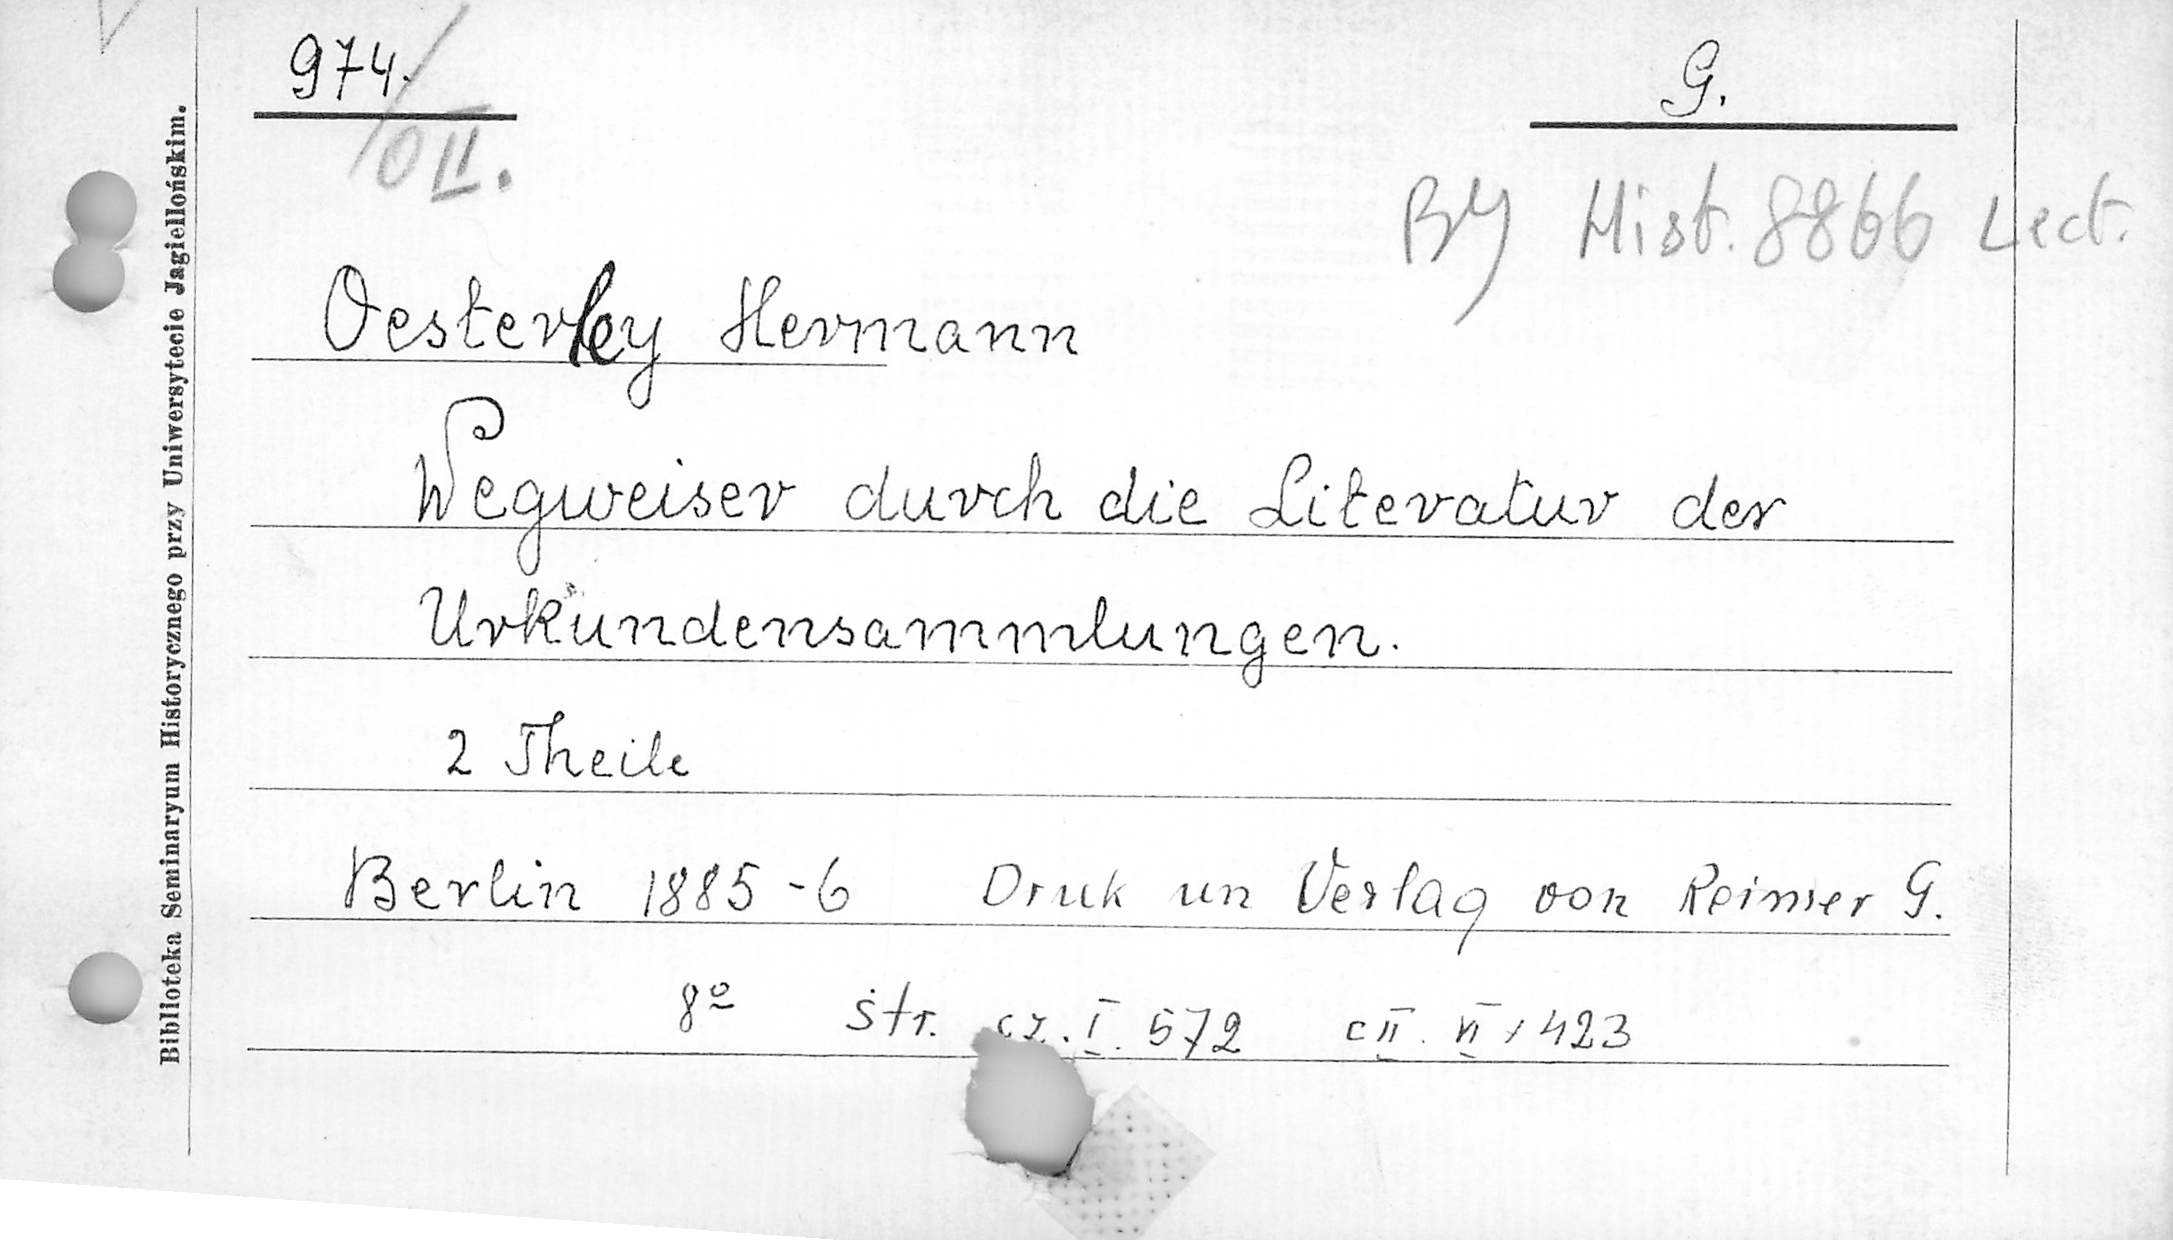 974. G.
O II.
BJ Hist. 8866 Lect.
Oesterley Hermann
Wegweiser durch die Literatur der
Urkundensammlungen.
2 Theile
Berlin 1885-6 Druk un Verlag von Reimer G.
8º str. cz. I. 572 c II. VI, 423
Biblioteka Seminaryum Historycznego przy Uniwersytecie Jagiellońskim.